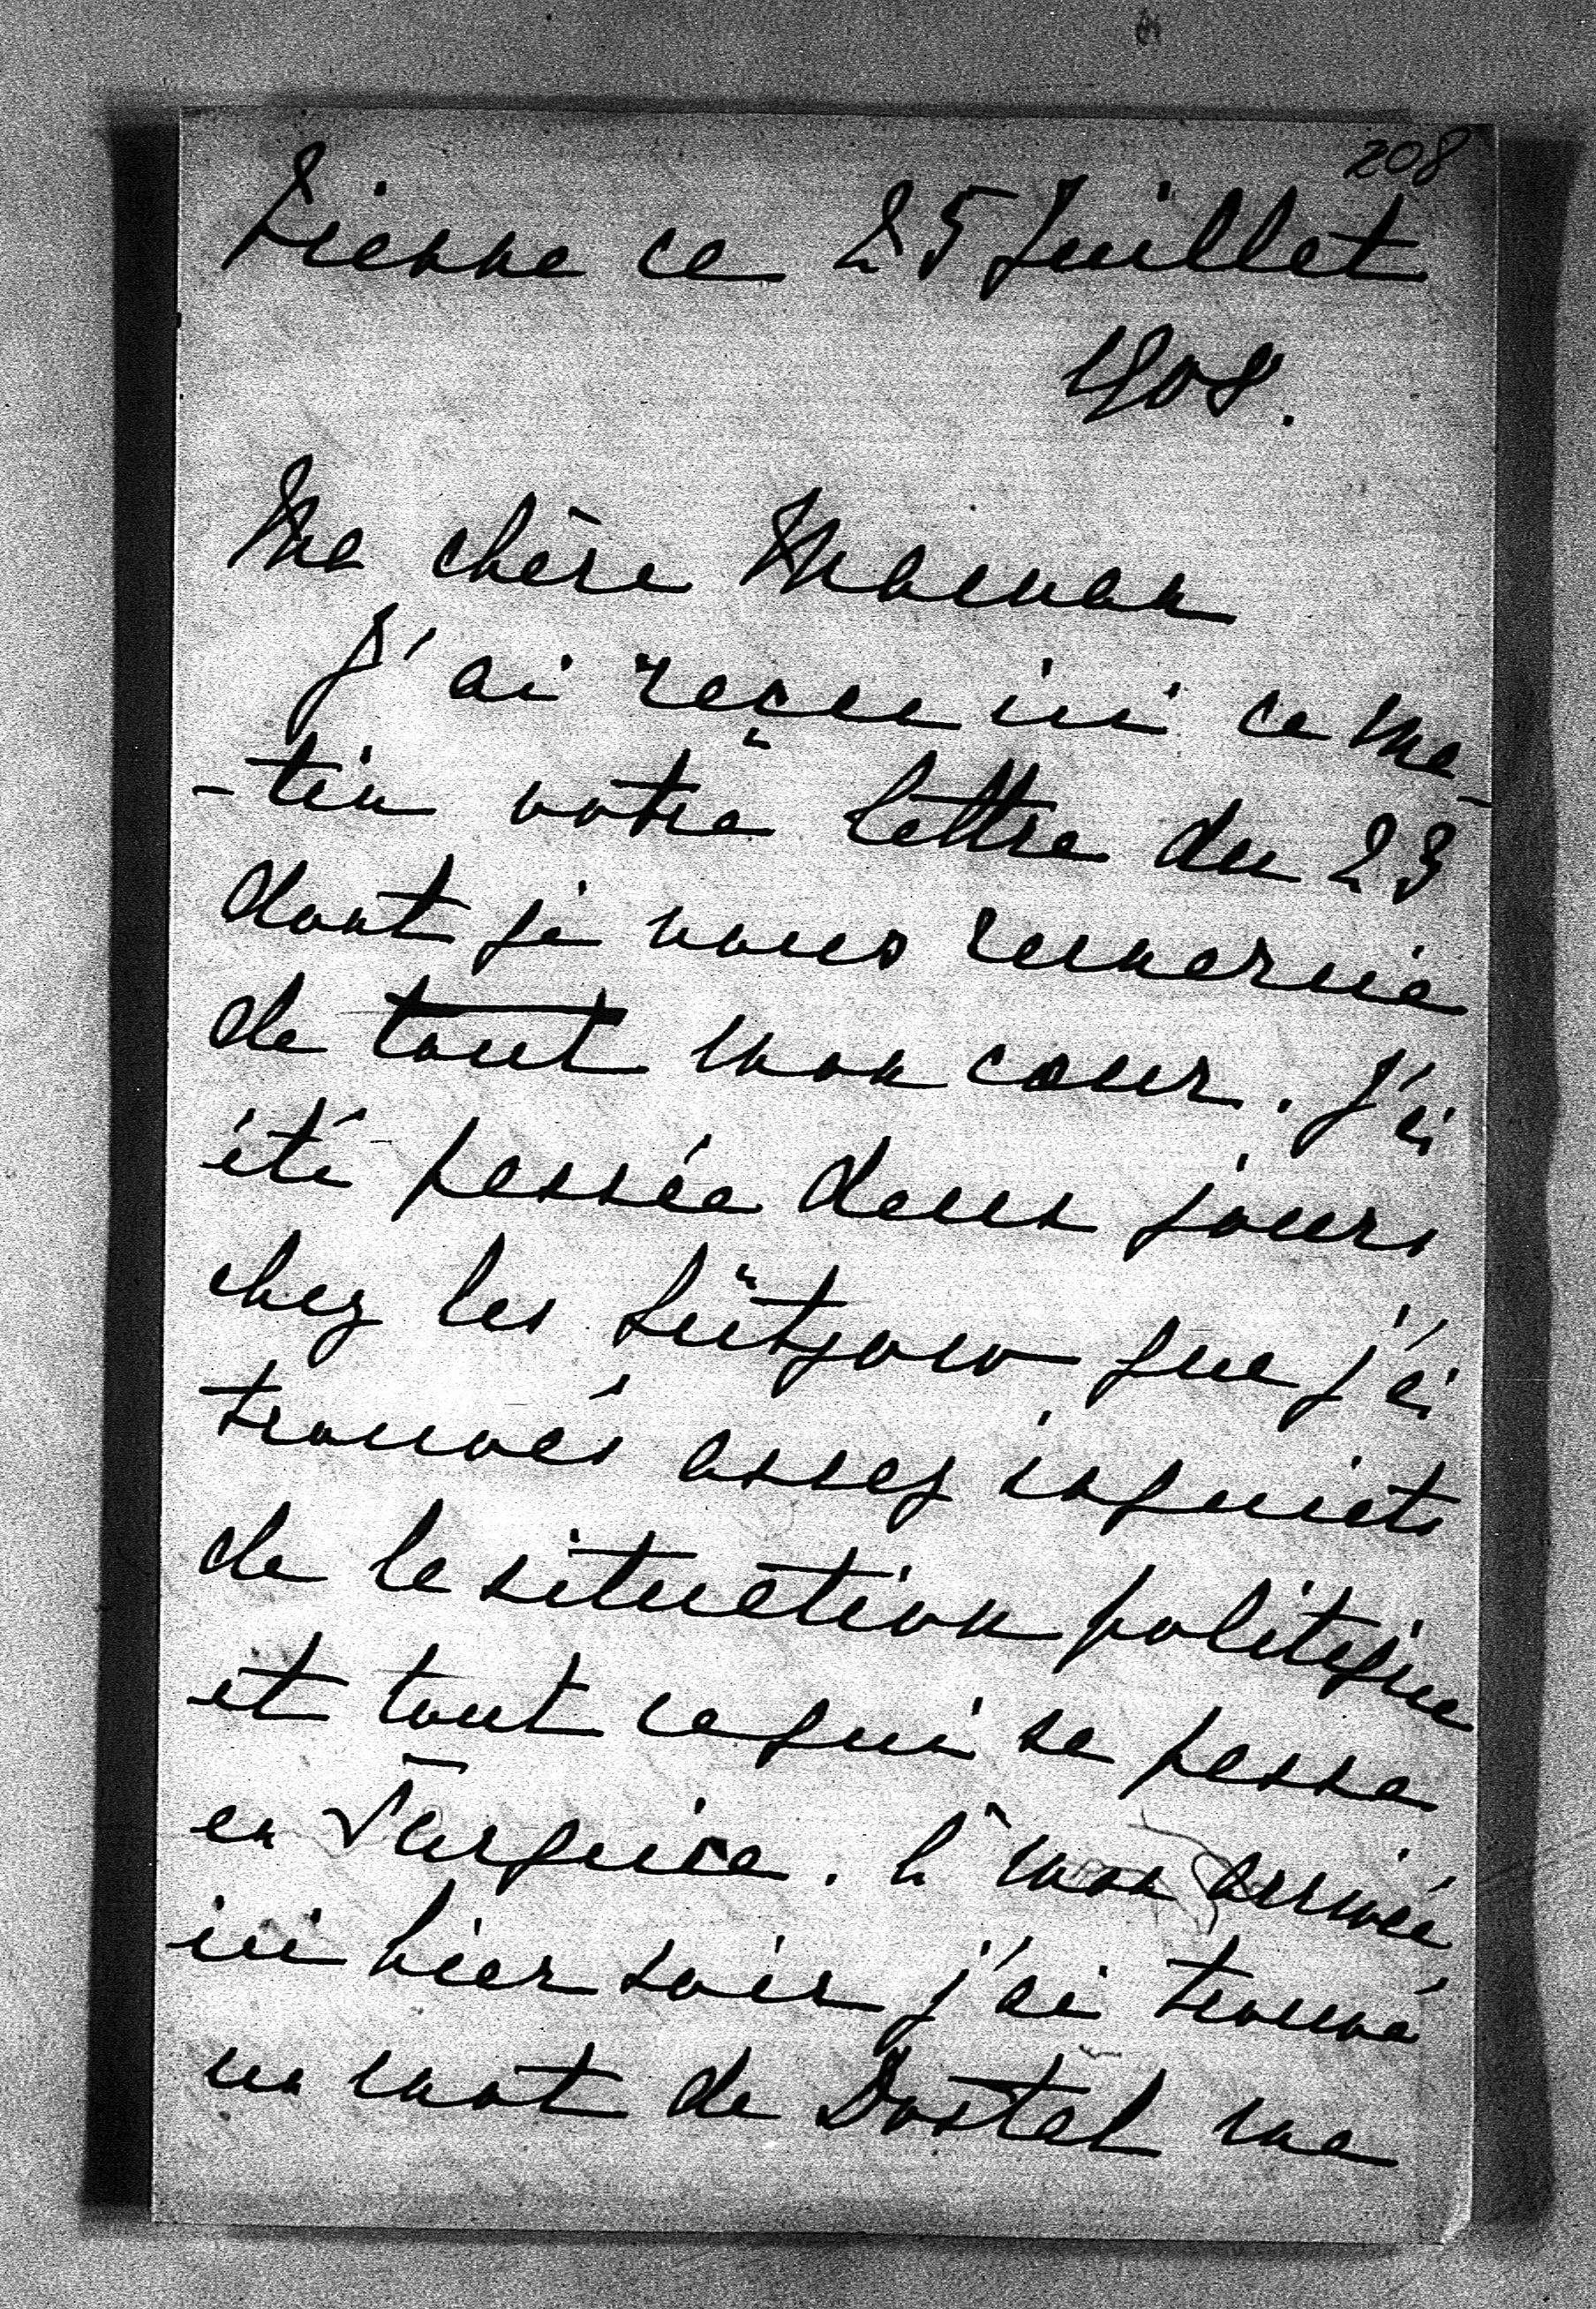 208
Vienne ce 25 Juillet
1908.
Ma chère Maman
J'ai reçu ici ce ma-
-tin votre lettre du 23
dont je vous remercie
de tout mon cœur. J'ai
été passée deux jours
chez les Lützow que j'ai
trouvés assez inquiets
de la situation politique
et tout ce qui se passe
en Turquie. A mon arrivée
ici hier soir j'ai trouvé
un mot de Dostal me